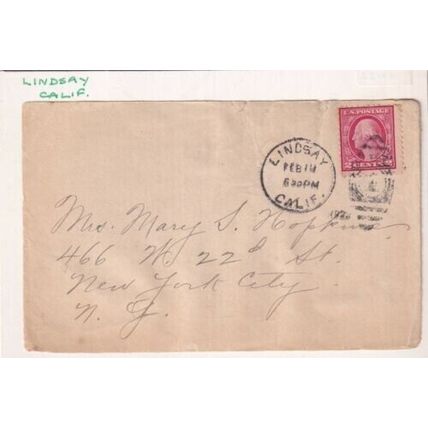 LINDSAY
CALIF.
U.S. POSTAGE
2 CENTS 2
LINDSAY
FEB
630PM
CALIF.
Mrs. Mary S. Hopkins
466 W. 22d St.
New York City.
N. Y.